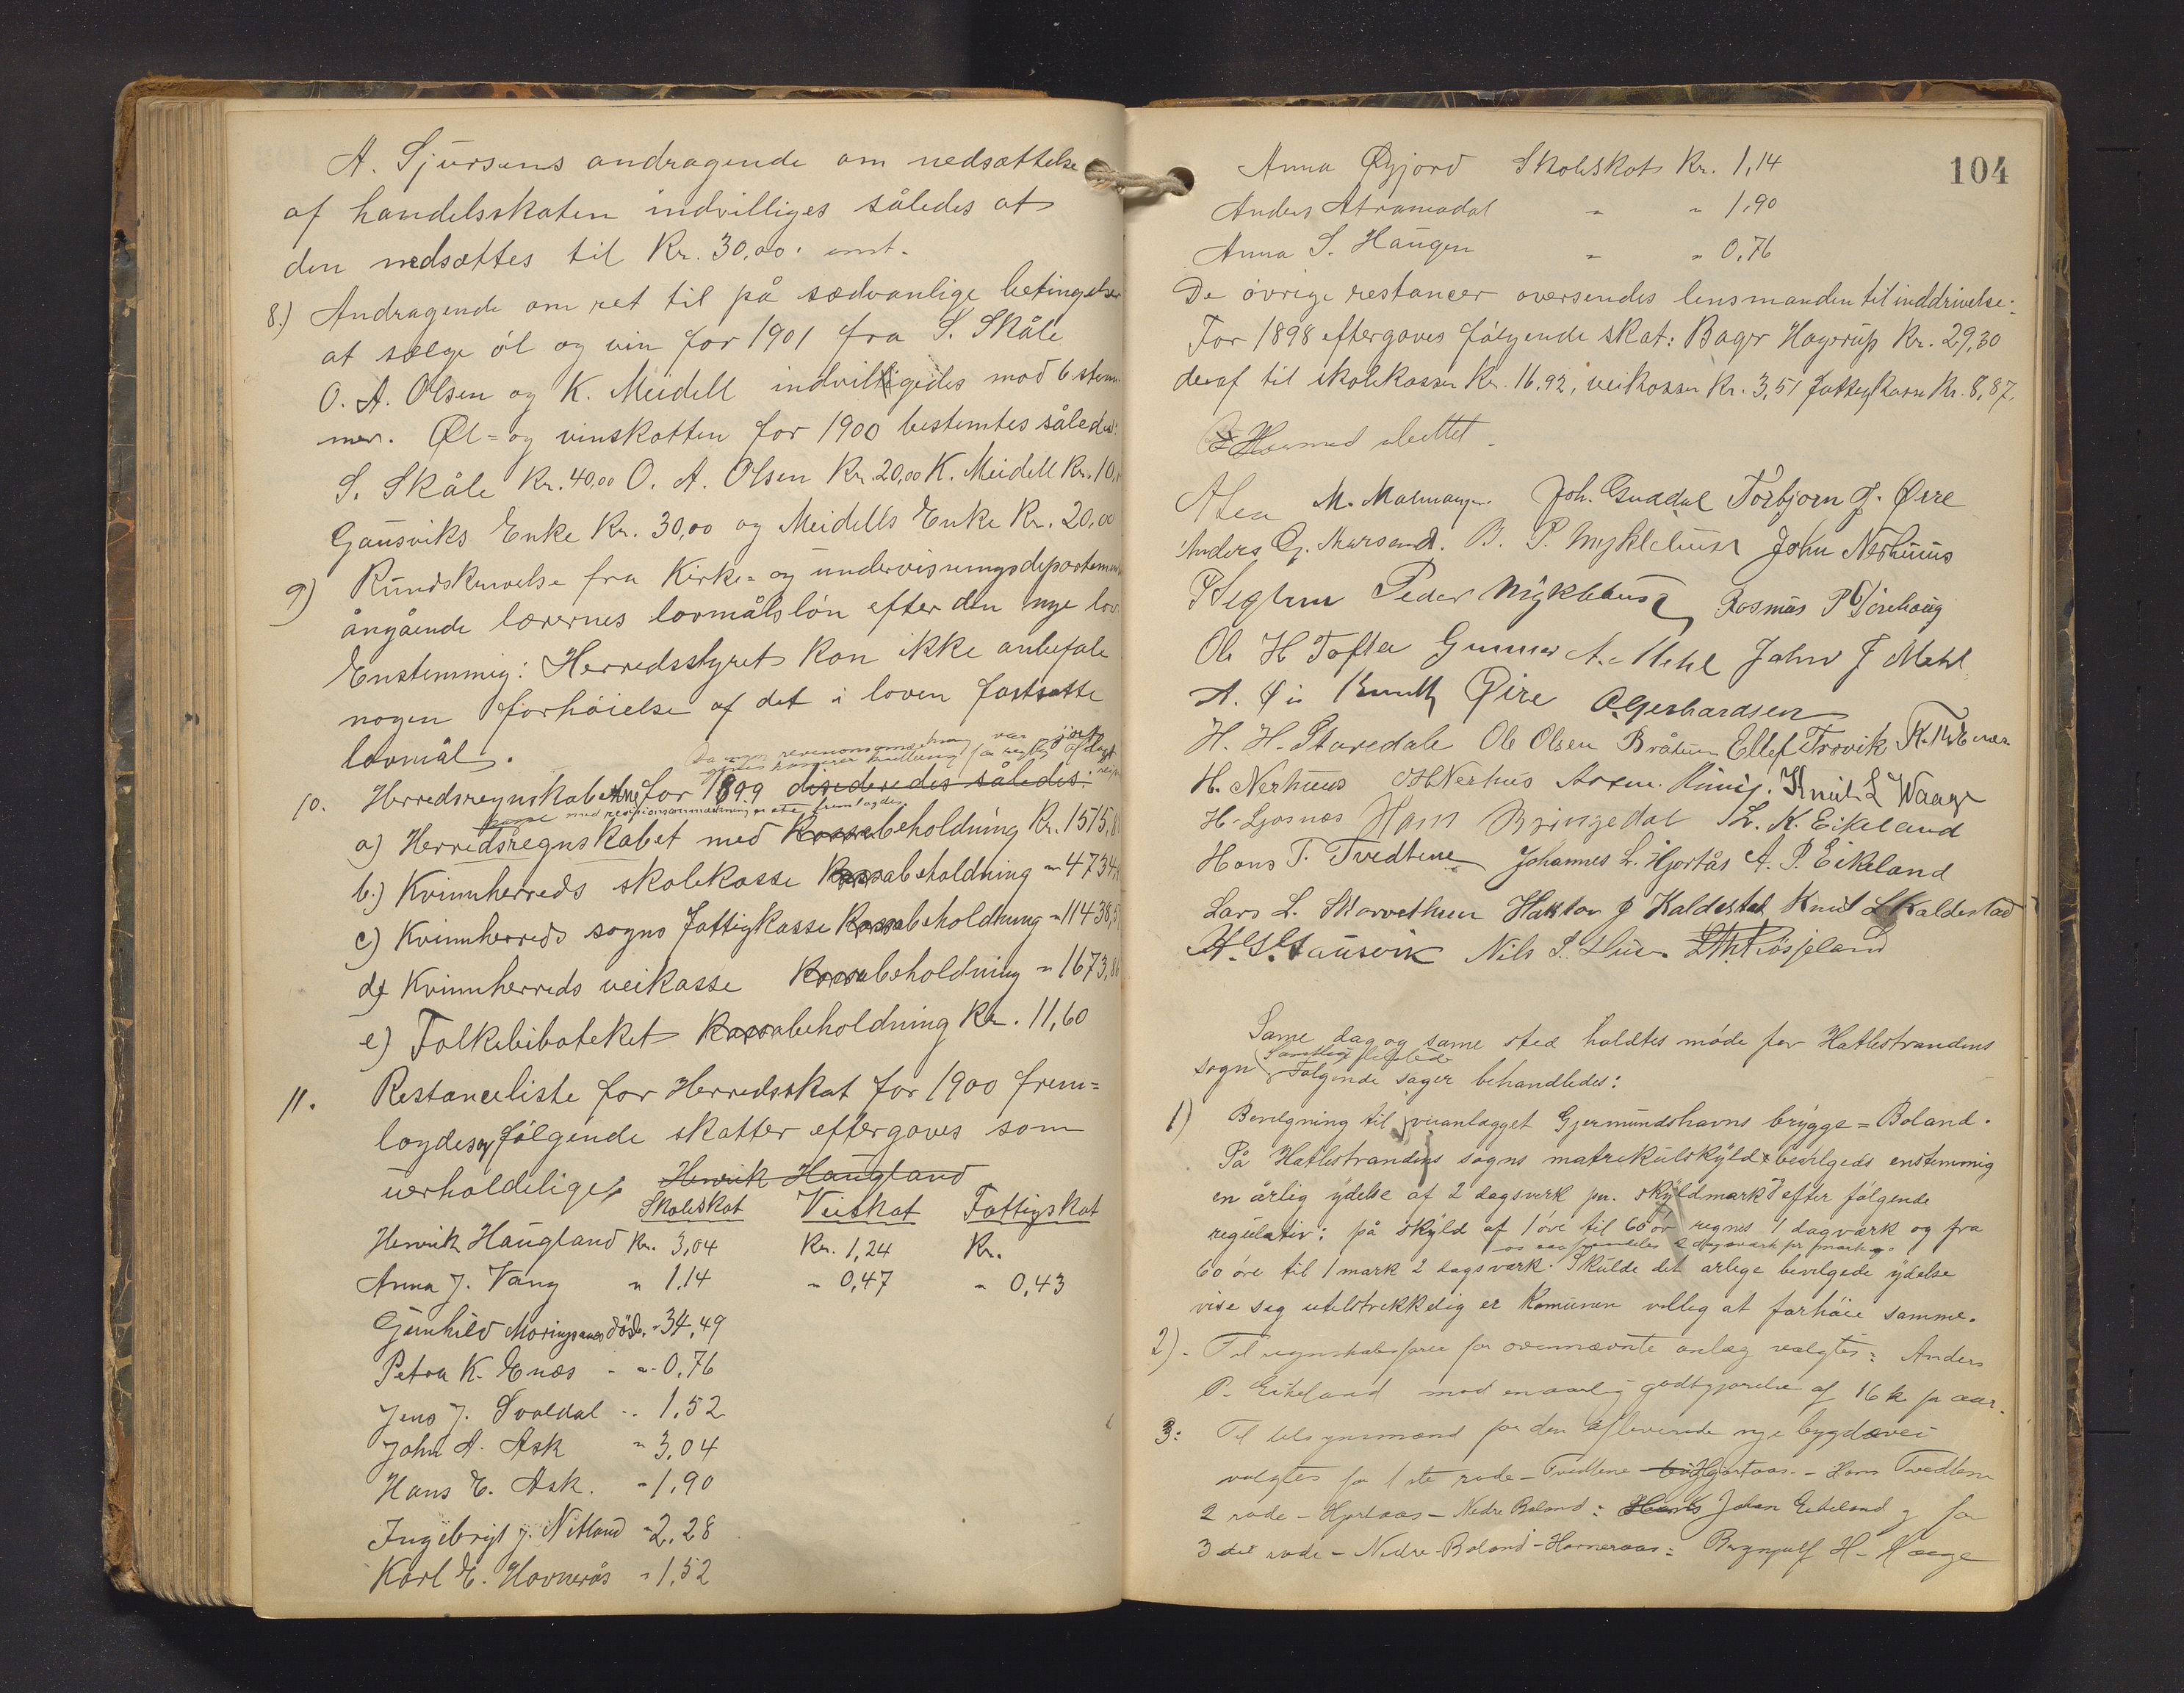 A. Sjursens andragende om nedsættelse
af handelsskaten indvilliges således at
den nedsættes til Kr. 30,00. enst.
8.) Andragende om ret til på sædvanlige betingelser
at sælge øl og vin for 1901 fra S. Skåle
O. A. Olsen og K. Meidell indvilligedes mod 6 stem-
mer. Øl- og vinskatten for 1900 bestemtes således:
S. Skåle Kr. 40,00 O. A. Olsen Kr. 20,00 K. Meidell Kr. 10,
Gausviks Enke Kr. 30,00 og Meidells Enke Kr. 20,00
9) Rundskrivelse fra Kirke- og undervisningsdepartement
ångående lærernes lovmålsløn efter den nye lov.
Enstemmig: Herredsstyret kan ikke anbefale
nogen forhøielse af det i loven fastsatte
lovmål.
10. Herredsregnskaberne for 1899 disideredes således:
a) Herredsregnskabet med Kassabeholdning Kr. 1515,
b.) Kvinnherreds skolekasse Kassabeholdning " 4734
c) Kvinnherreds sogns fattigkasse Kassabeholdning " 11438,5
d) Kvinnherreds veikasse Kassabeholdning " 1673,
e) Folkebiboteket Kassabeholdning Kr. 11,60
11. Restanceliste for Herredsskat for 1900 frem-
lagdes og følgende skatter eftergaves som
uerholdelige, Henrik Haugland
Skoleskat Veiskat Fattigskat
Henrik Haugland Kr. 3,04 Kr. 1,24 Kr.
Anna J. Vang " 1,14 " 0,47 " 0,43
Gunhild døde. " 34,49
Petra K. Enæs " 0,76
Jens J. Svaldal " 1,52
John A. Ask " 3,04
Hans E. Ask. " 1,90
Ingebrigt J. Nitland " 2,28
Karl E. Havnerås " 1,52
104
Anna Øyjord Skoleskat Kr. 1,14
Anders " " 1,90
Anna S. Haugen " " 0,76
De øvrige restancer oversendes lensmanden til inddrivelse.
For 1898 eftergaves følgende skat: Bager Hagerup Kr. 29,30
deraf til skolekassen Kr. 16,92, veikassen Kr. 3,51 fattigkassen Kr. 8,87.
Hermed sluttet.
M. Malmanger Joh. Guddal Torbjørn J. Øire
Anders G. B. P. Myklebust John Nerhuus
Peder Myklebust Rasmus P
Ole H Tofte Gunnar A. Mehl John J Mehl
A. Øi Knut Øire O. Gerhardsen
H. H. Staredale Ole Olsen Bråtun Ellef Trovik
H. Nerhuus OH Nerhus Knut L Waage
H. Ljosnæs Hans Bringedal L. K. Eikeland
Hans T. Tvedtene Johannes L. Hjortås A. P. Eikeland
Lars L. Skarvethun Haktor J Kaldestad Knut L Kaldestad
Gausvik Nils
Same dag og same sted holdtes møde for Hatlestrandens
sogn Samtlige
Følgende sager behandledes:
1) Bevilgning til veianlægget Gjermundshavns brygge = Boland.
På Hatlestrandens sogns matrekulskyld bevilgeds enstemmig
en årlig ydelse af 2 dagsverk pr. skyldmark efter følgende
regulativ: på skyld af 1 øre til 60 ør regnes 1 dagværk og fra
60 øre til 1 mark 2 dagsværk. Skulde det arlige bevilgede ydelse
vise seg utilstrekkelig er Komunen villig at forhøie samme.
2). Til regnskabsfører for ovennævnte anlæg valgtes: Anders
P. Eikeland mod en aarlig godtgjørelse af 16 k pr aar.
3: Til tilsynsmænd for den nye bygdevei
valgtes for 1ste rode - Tvedtene Hjortaas. - Hans Tvedtene
2 rode - Hjortaas - Nedre Boland: Hans Johan Eikeland og for
3die rode - Nedre-Boland - Havneraas: Brynjulf H.